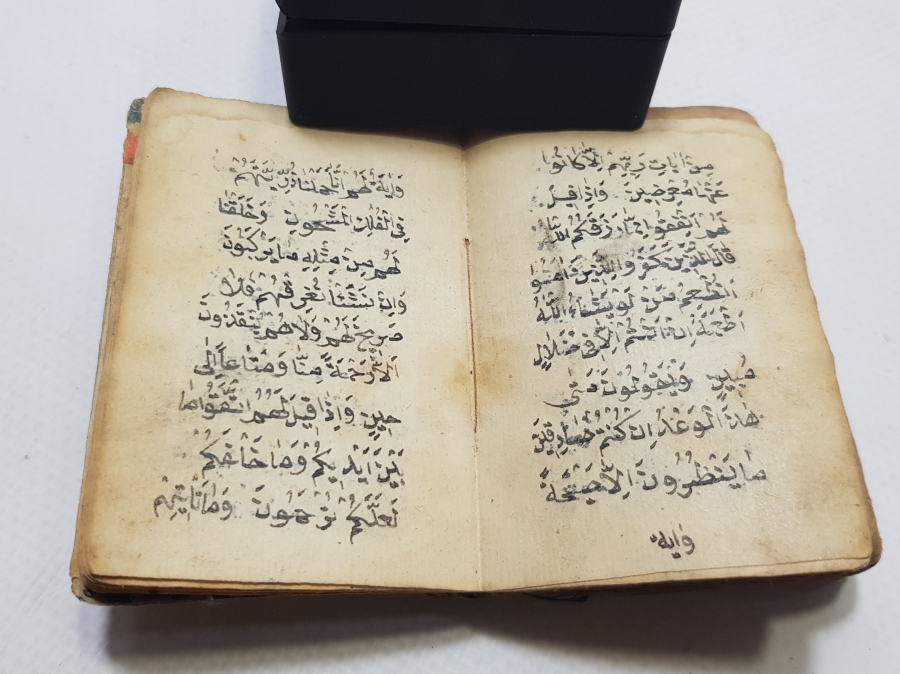 مِنْ اٰيَاتِ رَبِّهِمْ اِلَّا كَانُوا
عَنْهَا مُعْرِضِينَ وَاِذَا قِيلَ
لَهُمْ اَنْفِقُوا مِمَّا رَزَقَكُمُ اللّٰهُ
قَالَ الَّذِينَ كَفَرُوا لِلَّذِينَ اٰمَنُوا
اَنُطْعِمُ مَنْ لَوْ يَشَاءُ اللّٰهُ
اَطْعَمَهُ اِنْ اَنْتُمْ اِلَّا فِى ضَلَالٍ
مُبِينٍ وَيَقُولُونَ مَتٰى
هٰذَا الْوَعْدُ اِنْ كُنْتُمْ صَادِقِينَ
مَا يَنْظُرُونَ اِلَّا صَيْحَةً
وايه
وَاٰيَةٌ لَهُمْ اَنَّا حَمَلْنَا ذُرِّيَّتَهُمْ
فِى الْفُلْكِ الْمَشْحُونِ وَخَلَقْنَا
لَهُمْ مِنْ مِثْلِهِ مَا يَرْكَبُونَ
وَاِنْ نَشَأْ نُغْرِقْهُمْ فَلَا
صَرِيخَ لَهُمْ وَلَا هُمْ يُنْقَذُونَ
اِلَّا رَحْمَةً مِنَّا وَمَتَاعًا اِلٰى
حِينٍ وَاِذَا قِيلَ لَهُمُ اتَّقُوا مَا
بَيْنَ اَيْدِيكُمْ وَمَا خَلْفَكُمْ
لَعَلَّكُمْ تُرْحَمُونَ وَمَا تَأْتِيهِمْ